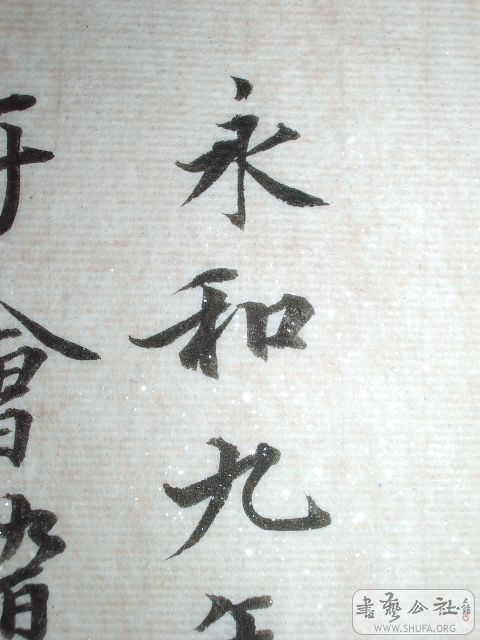 永和九年
于會稽
書藝公社
WWW.SHUFA.ORG